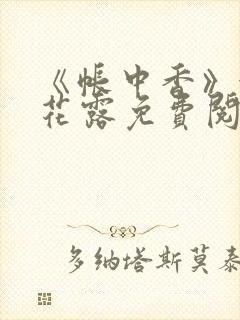 《帐中香》
花露免费阅
多纳塔斯莫泰